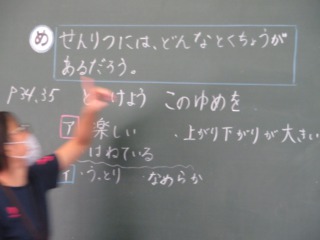 め せんりつには、どんなとくちょうが
あるだろう。
P34.35 とどけよう このゆめを
ア 楽しい ・上がり下がりが大きい
はねている
イ ・うっとり ・なめらか